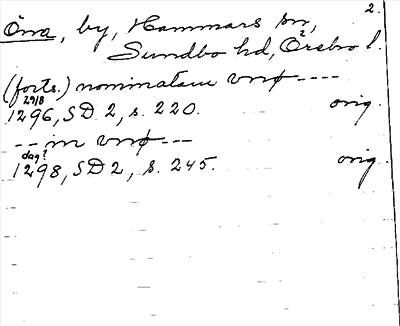 2.
Öna, by, Hammars sn,
Sundbo hd, Örebro l.
(forts.) nominatam vnø ----
29/8
1296, SD 2, s. 220. orig.
-- in vnø ---
dag?
1298, SD 2, s. 245. orig.